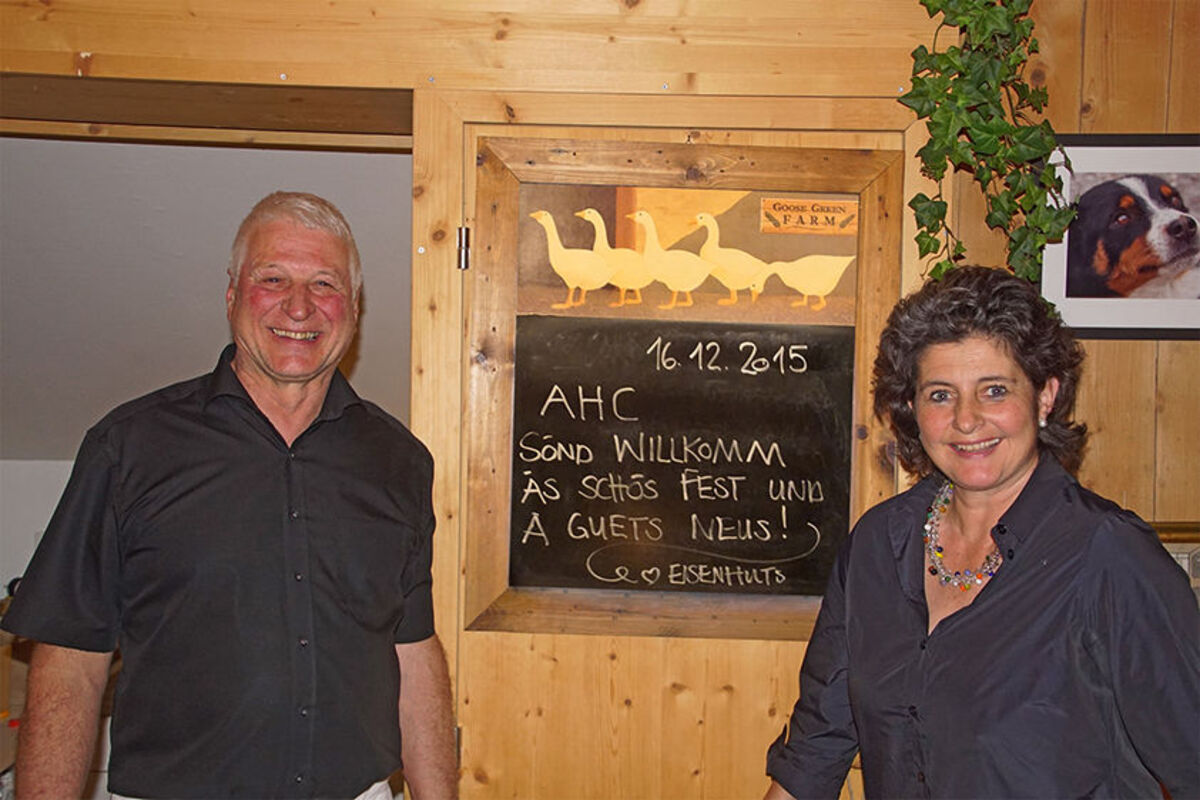 GOOSE GREEN
FARM
16.12.2015
AHC
SÖND WILLKOMM
ÄS SCHÖS FEST UND
Ä GUETS NEUS!
♡ EISENHUTS